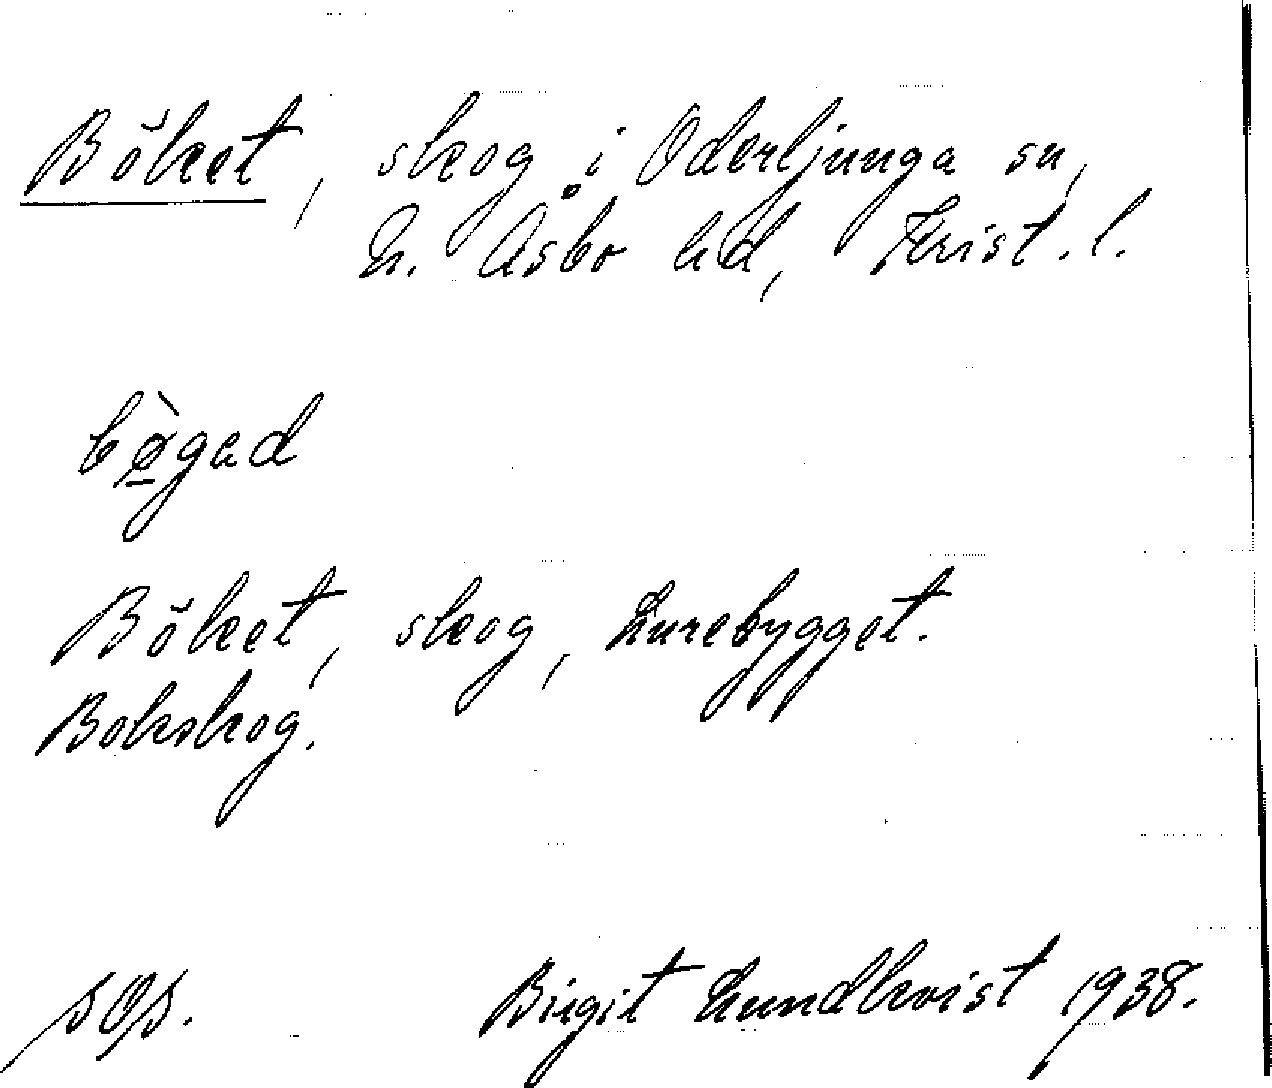 Böket, skog i Oderljunga sn,
N. Åsbo hd, Krist. l.
bø̠̀gad
Böket, skog, Lurebygget.
Bokskog.
SOS. Birgit Lundkvist 1938.